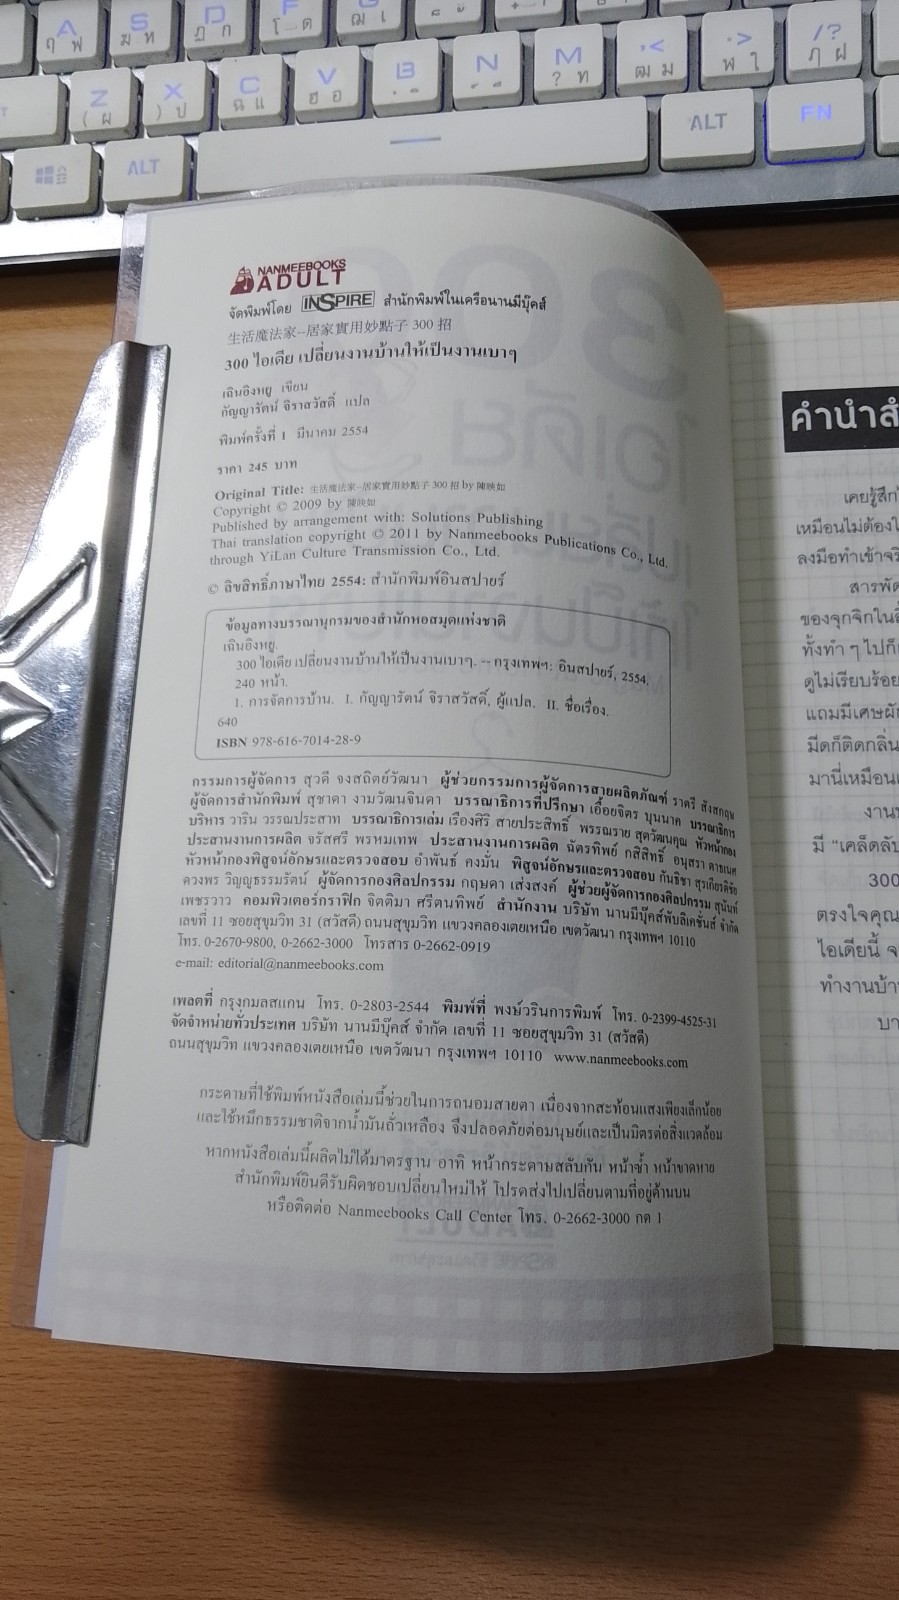 A S D F
Z X C V B N M
ALT ALT FN
NANMEEBOOKS
ADULT
จัดพิมพ์โดย INSPIRE สำนักพิมพ์ในเครือนานมีบุ๊คส์
生活魔法家–居家實用妙點子 300 招
300 ไอเดีย เปลี่ยนงานบ้านให้เป็นงานเบาๆ
เฉินอิงหยู เขียน
กัญญารัตน์ จิราสวัสดิ์ แปล
พิมพ์ครั้งที่ 1 มีนาคม 2554
ราคา 245 บาท
Original Title: 生活魔法家–居家實用妙點子 300 招 by 陳映如
Copyright © 2009 by 陳映如
Published by arrangement with: Solutions Publishing
Thai translation copyright © 2011 by Nanmeebooks Publications Co., Ltd.
through YiLan Culture Transmission Co., Ltd.
© ลิขสิทธิ์ภาษาไทย 2554: สำนักพิมพ์อินสปายร์
ข้อมูลทางบรรณานุกรมของสำนักหอสมุดแห่งชาติ
เฉินอิงหยู.
300 ไอเดีย เปลี่ยนงานบ้านให้เป็นงานเบาๆ. -- กรุงเทพฯ: อินสปายร์, 2554,
240 หน้า.
1. การจัดการบ้าน. I. กัญญารัตน์ จิราสวัสดิ์, ผู้แปล. II. ชื่อเรื่อง.
640
ISBN 978-616-7014-28-9
กรรมการผู้จัดการ สุวดี จงสถิตย์วัฒนา ผู้ช่วยกรรมการผู้จัดการสายผลิตภัณฑ์ ราตรี สังสกฤษ
ผู้จัดการสำนักพิมพ์ สุชาดา งามวัฒนจินดา บรรณาธิการที่ปรึกษา เอื้อยจิตร บุนนาค บรรณาธิการ
บริหาร วาริน วรรณประสาท บรรณาธิการเล่ม เรืองศิริ สายประสิทธิ์ พรรณราย สุตวัฒนคุณ หัวหน้ากอง
ประสานงานการผลิต จรัสศรี พรหมเทพ ประสานงานการผลิต ฉัตรทิพย์ กสิสิทธิ์ อนุสรา
หัวหน้ากองพิสูจน์อักษรและตรวจสอบ อำพันธ์ คงมั่น พิสูจน์อักษรและตรวจสอบ กันธิชา สุรเกียรติชัย
ดวงพร วิญญูธรรมรัตน์ ผู้จัดการกองศิลปกรรม กฤษดา เส่งสงค์ ผู้ช่วยผู้จัดการกองศิลปกรรม สุนันท์
เพชรวาว คอมพิวเตอร์กราฟิก จิตติมา ศรีตนทิพย์ สำนักงาน บริษัท นานมีบุ๊คส์พับลิเคชั่นส์ จำกัด
เลขที่ 11 ซอยสุขุมวิท 31 (สวัสดี) ถนนสุขุมวิท แขวงคลองเตยเหนือ เขตวัฒนา กรุงเทพฯ 10110
โทร. 0-2670-9800, 0-2662-3000 โทรสาร 0-2662-0919
e-mail: editorial@nanmeebooks.com
เพลตที่ กรุงกมลสแกน โทร. 0-2803-2544 พิมพ์ที่ พงษ์วรินการพิมพ์ โทร. 0-2399-4525-31
จัดจำหน่ายทั่วประเทศ บริษัท นานมีบุ๊คส์ จำกัด เลขที่ 11 ซอยสุขุมวิท 31 (สวัสดี)
ถนนสุขุมวิท แขวงคลองเตยเหนือ เขตวัฒนา กรุงเทพฯ 10110 www.nanmeebooks.com
กระดาษที่ใช้พิมพ์หนังสือเล่มนี้ช่วยในการถนอมสายตา เนื่องจากสะท้อนแสงเพียงเล็กน้อย
และใช้หมึกธรรมชาติจากน้ำมันถั่วเหลือง จึงปลอดภัยต่อมนุษย์และเป็นมิตรต่อสิ่งแวดล้อม
หากหนังสือเล่มนี้ผลิตไม่ได้มาตรฐาน อาทิ หน้ากระดาษสลับกัน หน้าซ้ำ หน้าขาดหาย
สำนักพิมพ์ยินดีรับผิดชอบเปลี่ยนใหม่ให้ โปรดส่งไปเปลี่ยนตามที่อยู่ด้านบน
หรือติดต่อ Nanmeebooks Call Center โทร. 0-2662-3000 กด 1
คำนำสำ
เคยรู้สึก
เหมือนไม่ต้อง
ลงมือทำเข้าจริ
สารพัด
ของจุกจิกใน
ทั้งทำ ๆ ไปก็
ดูไม่เรียบร้อย
แถมมีเศษผั
มีดก็ติดกลิ่น
มานี่เหมือน
งาน
มี "เคล็ดลับ
300
ตรงใจคุณ
ไอเดียนี้ จ
ทำงานบ้า
บา